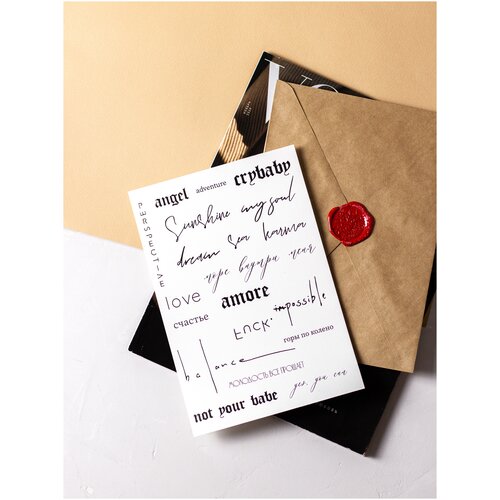 angel adventure crybaby
PERSPECTIVE
Sunshine my soul
dream sea karma
море внутри меня
love amore
счастье
Luck impossible
горы по колено
balance
МОЛОДОСТЬ ВСЕ ПРОЩАЕТ
yes, you can
not your babe